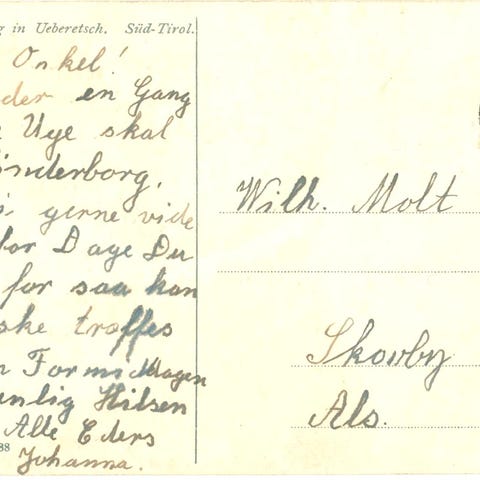 g in Ueberetsch. Süd-Tirol.
Onkel!
der en Gang
Uge skal
nderborg,
i gerne vide
for Dage Du
for saa kan
ske træffes
n Formiddagen
enlig Hilsen
Alle Eders
Johanna.
88
Wilh. Molt
Skovby
Als.